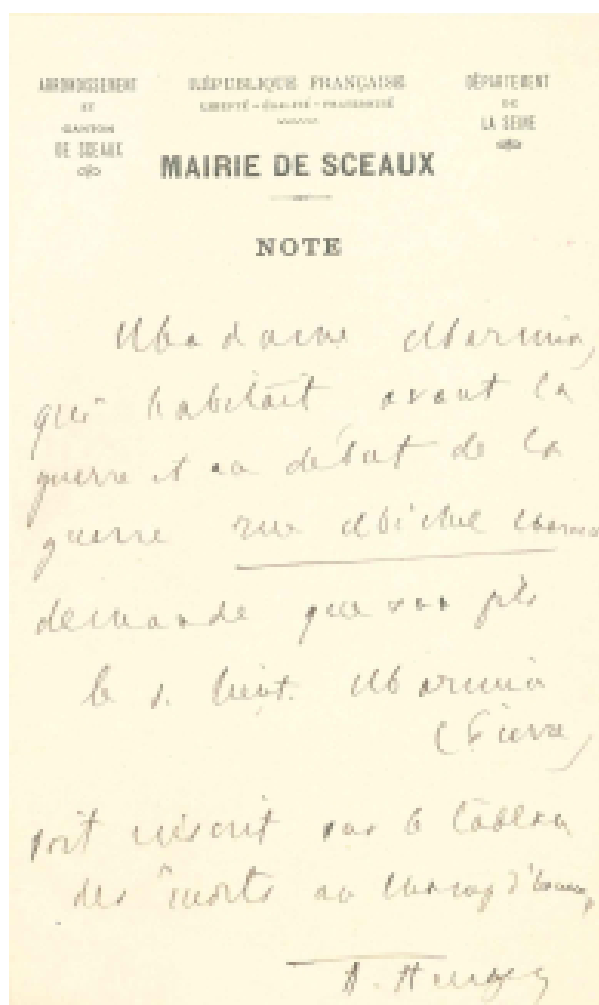 ARRONDISSEMENT
ET
CANTON
DE SCEAUX
RÉPUBLIQUE FRANÇAISE
LIBERTÉ - ÉGALITÉ - FRATERNITÉ
DÉPARTEMENT
DE
LA SEINE
MAIRIE DE SCEAUX
NOTE
Madame Marmin,
qui habitait avant la
guerre et au début de la
guerre rue Michel
demande que son fils
le s. lieut. Marmin
(Pierre)
soit inscrit sur le tableau
des morts au champ d'honneur